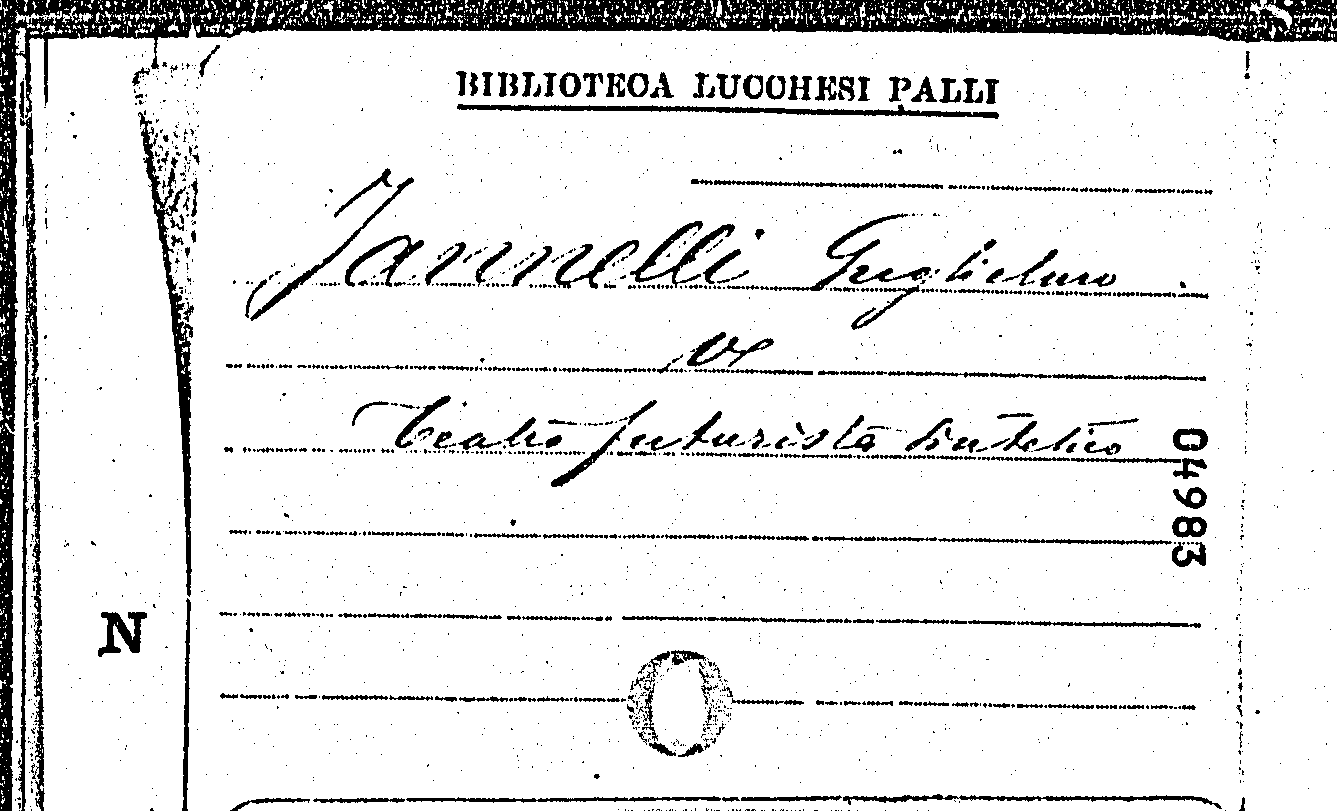 BIBLIOTECA LUCCHESI PALLI
Jannelli Guglielmo
Teatro futurista sintetico
04983
N